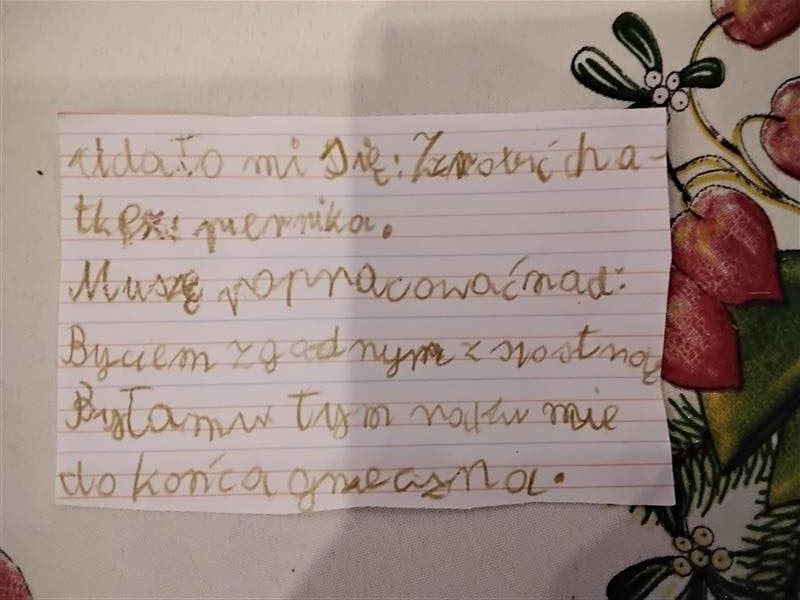 udało mi się: Zrobić cha-
tkę z piernika.
Muszę popracować nad:
Byciem zgodnym z siostrą
Byłam w tym roku nie
do końca grzeczna.